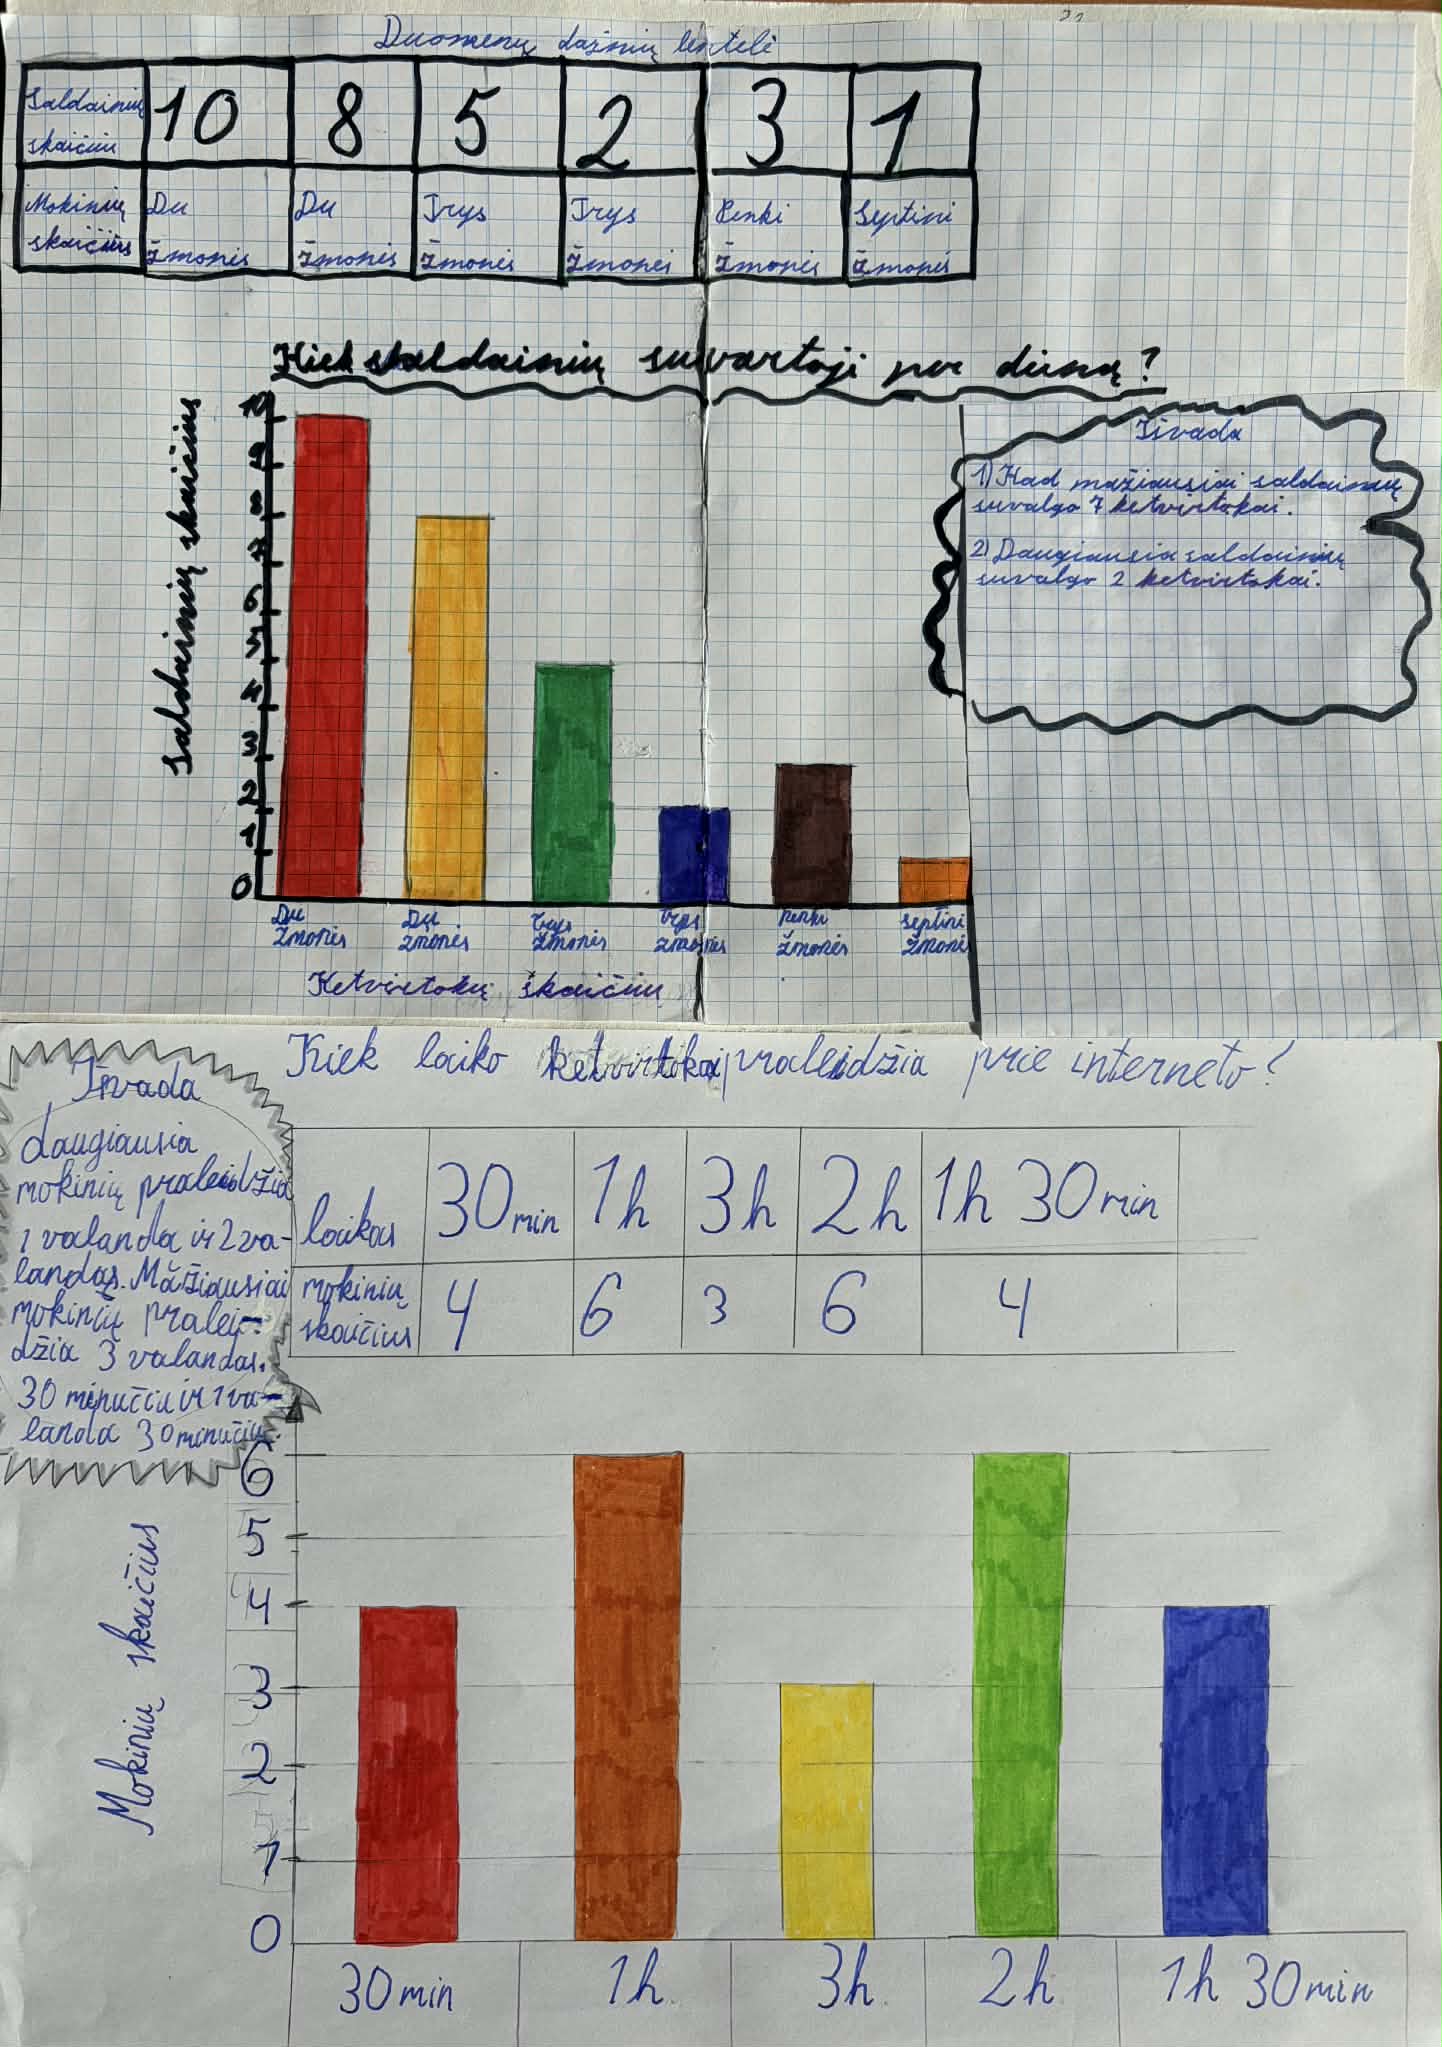 Duomenų dažnių lentelė
Saldainių skaičius 10 8 5 2 3 1
Mokinių skaičius Du žmonės Du žmonės Trys žmonės Trys žmonės Penki žmonės Septini žmonės
Kiek saldainių suvartoji per dieną?
saldainių skaičius
10
9
8
7
6
5
4
3
2
1
0
Du žmonės
Du žmonės
trys žmonės
trys žmonės
penki žmonės
septini žmonė
Ketvirtokų skaičius
Išvada
1) Kad mažiausiai saldainių
suvalgo 7 ketvirtokai.
2) Daugiausia saldainių
suvalgo 2 ketvirtokai.
Kiek laiko ketvirtokai praleidžia prie interneto?
Išvada
daugiausia
mokinių praleidžia
1 valanda ir 2 va-
landas. Mažiausiai
mokinių pralei-
džia 3 valandas.
30 minučiu ir 1 va-
landa 30 minučių.
laikas 30 min 1h 3h 2h 1h 30 min
mokinių skaičius 4 6 3 6 4
Mokinių skaičius
6
5
4
3
2
1
0
30 min 1h. 3h. 2h. 1h 30 min